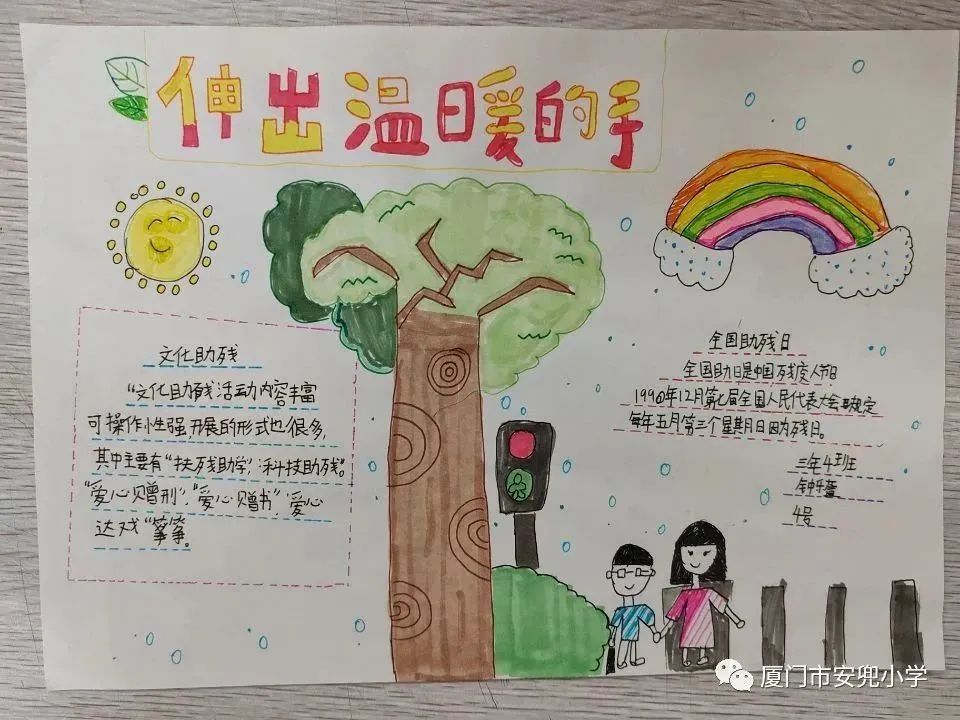 伸出温暖的手
文化助残
“文化助残活动内容丰富
可操作性强,开展的形式也很多,
其中主要有“扶残助学”,“科技助残”。
“爱心赠刊”,“爱心赠书”,爱心
达戏“等等。
全国助残日
全国助日是中国残疾人节日
1990年12月第七届全国人民代表大会
每年五月第三个星期日因为残日。
三年4班
4号
厦门市安兜小学